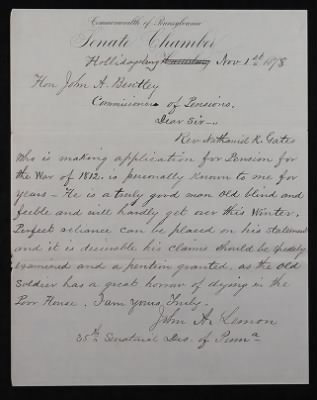 Commonwealth of Pennsylvania
Senate Chamber
Hollidaysburg Harrisburg Nov. 1st 1878
Hon John A. Bentley
Commissioner of Pensions.
Dear Sir
Rev Nathaniel R. Gates
who is making application for Pension for
the War of 1812. is personally known to me for
years - He is a truly good man old blind and
feeble and will hardly get over this Winter.
Perfect reliance can be placed on his statement
and it is desirable his claims should be speedily
examined and a pention granted, as the old
Soldier has a great horror of dying in the
Poor House. I am yours Truly.
John A. Lemon
35th Senatorial Dis. of Penna